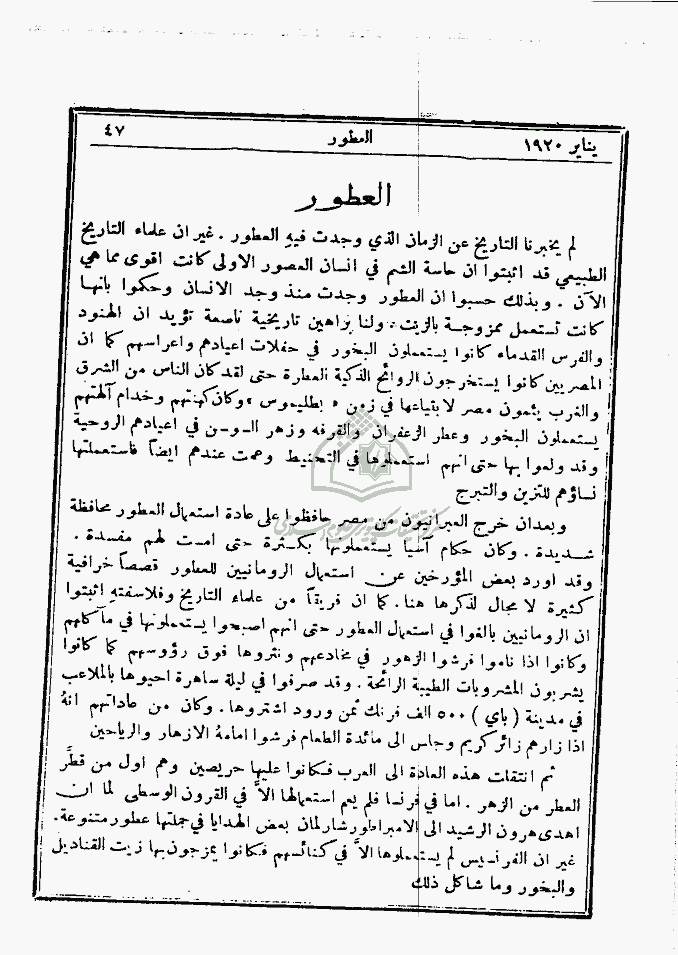 يناير ١٩٢٠ العطور ٤٧
العطور
لم يخبرنا التاريخ عن الزمان الذي وجدت فيهِ العطور . غير ان علماء التاريخ
الطبيعي قد اثبتوا ان حاسة الشم في انسان العصور الاولى كانت اقوى مما هي
الآن . وبذلك حسبوا ان العطور وجدت منذ وجد الانسان وحكموا بانها
كانت تستعمل ممزوجة بالزيت . ولنا براهين تاريخية ناصعة تؤيد ان الهنود
والفرس القدماء كانوا يستعملون البخور في حفلات اعيادهم واعراسهم كما ان
المصريين كانوا يستخرجون الروائح الذكية العطرة حتى لقد كان الناس من الشرق
والغرب يئمون مصر لابتياعها في زمن « بطليموس » وكان كهنتهم وخدام آلهتهم
يستعملون البخور وعطر الزعفران والقرفه وزهر السوسن في اعيادهم الروحية
وقد ولعوا بها حتى انهم استعملوها في التحنيط وعمت عندهم ايضاً فاستعملتها
نساؤهم للتزين والتبرج
وبعد ان خرج العبرانيون من مصر حافظوا على عادة استعمال العطور محافظة
شديدة . وكان حكام آسيا يستعملونها بكثرة حتى امست لهم مفسدة .
وقد اورد بعض المؤرخين عن استعمال الرومانيين للعطور قصصاً خرافية
كثيرة لا مجال لذكرها هنا . كما ان فريقاً من علماء التاريخ وفلاسفته اثبتوا
ان الرومانيين بالغوا في استعمال العطور حتى انهم اصبحوا يستعملونها في مآكلهم
وكانوا اذا ناموا فرشوا الزهور في مخادعهم ونثروها فوق رؤوسهم كما كانوا
يشربون المشروبات الطيبة الرائحة . وقد صرفوا في ليلة ساهرة احيوها بالملاعب
في مدينة ( باي ) ٥٠٠ الف فرنك ثمن ورود اشتروها . وكان من عاداتهم انهُ
اذا زارهم زائر كريم وجلس الى مائدة الطعام فرشوا امامهُ الازهار والرياحين
ثم انتقلت هذه العادة الى العرب فكانوا عليها حريصين وهم اول من قطَّر
العطر من الزهر . اما في فرنسا فلم يعم استعمالها الاَّ في القرون الوسطى لما ان
اهدى هرون الرشيد الى الامبراطور شارلمان بعض الهدايا في جملتها عطور متنوعة .
غير ان الفرنسيس لم يستعملوها الاَّ في كنائسهم فكانوا يمزجون بها زيت القناديل
والبخور وما شاكل ذلك